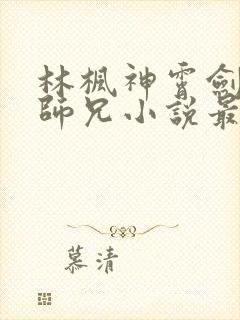 林楓神霄劍
師兄小說最
慕清